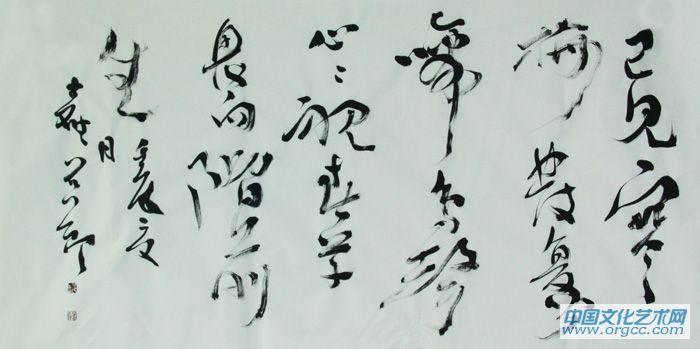 已見寒
梅發复
啼鳥聲
心々視春草
畏向階前
生
壬辰夏
月
中国文化艺术网
www.orgcc.com